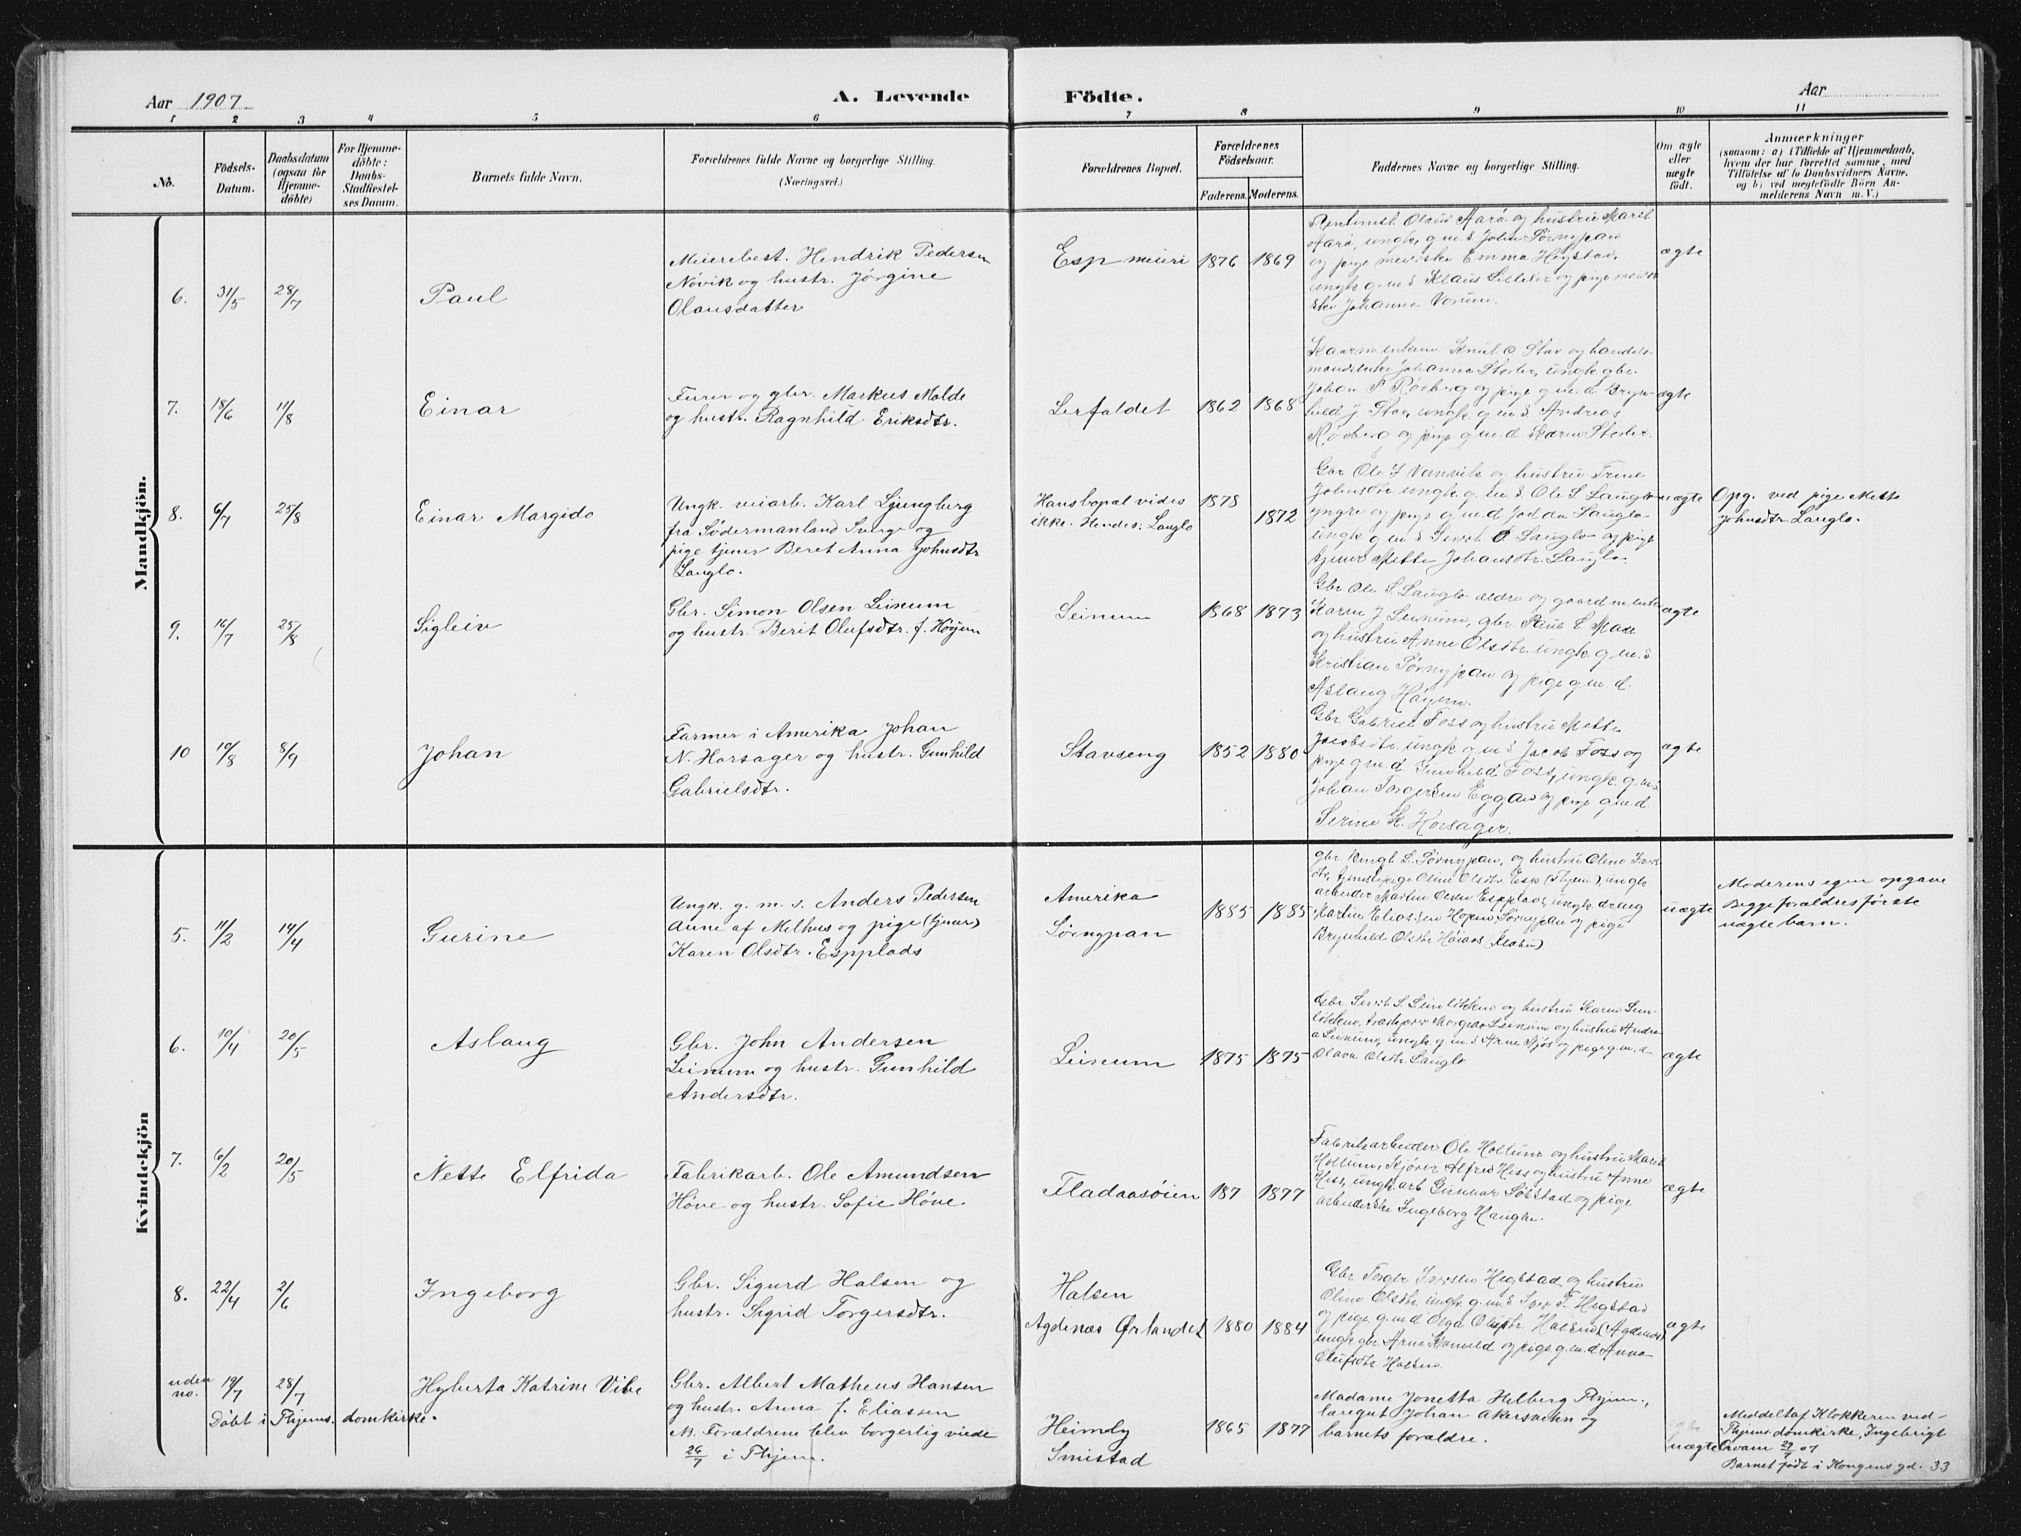 Aar 1907
A. Levende Födte.
Aar
1 2 3 4 5 6 7 8 9 10 11
No.
Födsels-Datum.
Daabsdatum (ogsaa for Hjemme-döbte)
For Hjemme-döbte: Daabs-Stadfæstel-ses Datum.
Barnets fulde Navn.
Forældrenes fulde Navne og borgerlige Stilling.
(Næringsvei.)
Forældrenes Bopæl.
Forældrenes Födselsaar.
Faderens. Moderens.
Faddernes Navne og borgerlige Stilling.
Om ægte eller uægte födt.
Anmærkninger
(saasom: a) i Tilfælde af Hjemmedaab,
hvem der har forrettet samme, med
Tilföielse af to Daabsvidners Navne.
og b) ved uegtefödte Börn An-
melderens Navn m. V.)
Mandkjön.
6. 31/5 28/7 Paul
Meierebest. Hendrik Pedersen
Növik og hustr. Jörgine
Olausdatter
Esp meieri 1876 1869
Olaus Aarö og hustru Marit
Aarö, ungk. g.m.s John Sörnypan
og pige meierske Emma Hegstad,
ungk g.m.s Klaus og pige meier
ske Johanna
ægte
7. 18/6 11/8 Einar
Furer og gbr. Markus Molde
og hustr. Ragnhild Eriksdtr.
Lerfaldet 1862 1868
Knut O Stav og handels-
Johanna ungk. gbr.
Johan P Röberg og pige g.m.d. Bryn-
hild J Stav, ungk g.m.s Andreas
Röberg og pige g.m.d. Karen
ægte
8. 6/7 25/8 Einar Margido
Ungk. veiarb. Karl Ljungberg
fra Södermanland Sverge og
pige tjener Beret Anna Johnsdtr
Langlo.
Hans bopæl vides
ikke. Hendes: Langlo
1878 1872
Gbr Ole S Vanvik og hustru Trine
Johnsdtr ungk g.m.s. Ole S Langlo
yngre og pige g.m.d Langlo
ungk g.m.s Sivert O Langlo og pige
tjener Mette Johansdtr. Langlo
uægte
Opg. ved pige Mette
Johnsdtr Langlo.
9. 16/7 25/8 Sigleiv
Gbr. Simon Olsen Leinum
og hustr. Berit Olufsdtr. f. Höyem
Leinum 1868 1873
Gbr Ole S. Langlo ældre og gaardm enke
Karen J Leinum, gbr. Paul E. Moe
og hustru Anne Olsdtr. ungk. g.m.s.
Kristian Sörnypan og pige g.m.d.
Aslaug Höyem.
ægte
10 19/8 8/9 Johan
Farmer i Amerika Johan
N. Horsager og hustr. Gunhild
Gabrielsdtr.
Stavseng 1852 1880
Gbr. Gabriel Foss og hustru Mette
Jacobsdtr. ungk g.m.s Jacob Foss og
pige g.m.d Gunhild Foss, ungk. g.m.s
Johan Torgersen Eggan og pige g.m.d
Serine K. Horsager.
ægte
Kvindekjön
5. 11/2 14/4 Gurine
Ungk. g. m. s. Anders Pedersen
Aune af Melhus og pige (tjener)
Karen Olsdtr. Espplads
Amerika
Sörnypan
1885 1885
gbr. Bengt S. Sörnypan, og hustru Oline Ivers
dtr, pige Oline Olsdtr Esp (Thjem), ungk.
arbeider Martin Olsen Espplads, ungk dreng
Martin Eliassen Sörnypan og pige
Brynhild Olsdtr Höiaas (Klæbu)
uægte
Moderens egen opgave
Begge forældres förste
uægte barn.
6. 10/4 20/5 Aslaug
Gbr. John Andersen
Leinum og hustr. Gunhild
Andersdtr.
Leinum 1875 1875
Gbr Sivert S. Leinlökken og hustru Karen Lein-
lökken, Margido Leinum og hustru Andre
a Leinum, ungk g.m.s Arne og pige g.m.d
Olava Olsdtr Langlo
ægte
7. 6/2 20/5 Nette Elfrida
Fabrikarb. Ole Amundsen
Höve og hustr. Sofie Höve.
Fladaasöien 187 1877
Fabrikarbeider Ole Hollum og hustru Marit
Hollum, Kjörer Alfred Hess og hustru Anne
Hess, ungk. arb. Gunnar Solstad og pige
arbeiderske Ingeborg Haugen.
ægte
8. 22/4 2/6 Ingeborg
Gbr. Sigurd Halsen og
hustr. Sigrid Torgersdtr.
Halsen
Agdenæs Örlandet 1880 1884
Gbr Torger Iversen Hegstad og hustru
Oline Olsdtr ungk. g.m.s Iver T. Hegstad
og pige g.m.d Olga Olsdtr. Halsen (Agdenæs)
ungk gbr Arne og pige g.m.d Anna
Olufsdtr Halsen.
ægte
uden no. 19/7 28/7 Hyberta Katrine Vibe
Döbt i Thjems. domkirke.
Gbr. Albert Matheus Hansen
og hustr. Anna f. Eliassen
M. Forældrene blev borgerlig viede
26/7 i Thjem.
Heimly
Smistad
1865 1877
Madame Jonetta Helberg Thjem.,
læregut Johan Akersveen og
barnets forældre.
uægte
Meddelt af Klokkeren ved
Thjems domkirke, Ingebrigt
Orvam 29/7 07
Barnet födt i Kongens gd. 33